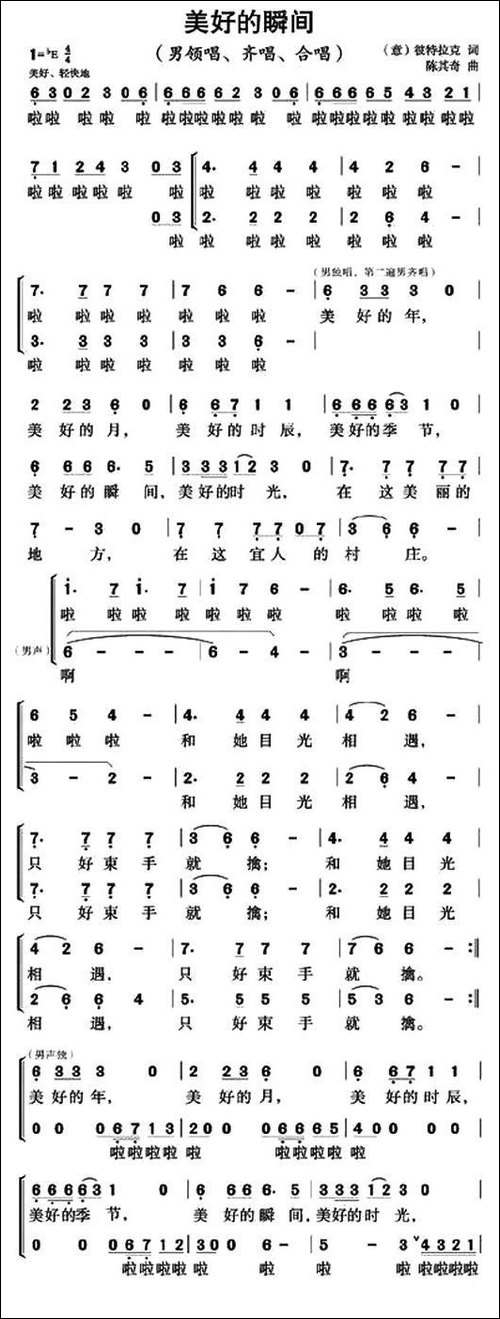 美好的瞬间
(男领唱、齐唱、合唱)
1=♭E 4/4
(意)彼特拉克 词
陈其奇 曲
美好、轻快地
6302 306 | 666 2 306 | 6666665 4321
啦啦 啦啦 啦 啦啦啦 啦 啦啦 啦啦啦啦啦啦啦啦啦啦啦
71 243 03 | 4. 4 4 4 | 4 2 6 - |
啦啦 啦啦啦 啦 啦 啦 啦 啦 啦 啦 啦
03 | 2. 2 2 2 | 2 6 4 - |
啦 啦 啦 啦 啦 啦 啦 啦
(男领唱,第二遍男齐唱)
7. 7 7 7 | 7 6 6 - | 6 333 0
啦 啦 啦 啦 啦 啦 啦 美 好的年,
3. 3 3 3 | 3 3 6 - |
啦 啦 啦 啦 啦 啦 啦
2 236 0 | 6 671 1 | 666631 0
美 好的月, 美 好的时辰, 美好的季 节,
6 666. 5 | 33312 3 0 | 7. 7 7 77
美 好的瞬 间,美好的时光, 在 这 美 丽的
7 - 3 0 | 7 7 77 07 | 3 6 6 - |
地 方, 在 这 宜人 的 村 庄。
1. 7 1. 7 | 1 7 6 - | 6. 5 6. 5
啦 啦 啦 啦 啦 啦 啦 啦 啦 啦 啦
(男声) 6 - - - | 6 - 4 - | 3 - - -
啊 啊
6 5 4 - | 4. 4 4 4 | 4 2 6 - |
啦 啦 啦 和 她 目 光 相 遇,
3 - 2 - | 2. 2 2 2 | 2 6 4 - |
和 她 目 光 相 遇,
7. 7 7 7 | 3 6 6 - | 4. 4 4 4
只 好 束 手 就 擒; 和 她 目 光
7. 7 7 7 | 3 6 6 - | 2. 2 2 2
只 好 束 手 就 擒; 和 她 目 光
4 2 6 - | 7. 7 7 7 | 7 6 6 - :‖
相 遇, 只 好 束 手 就 擒。
2 6 6 4 | 5. 5 5 5 | 5 3 6 - :‖
相 遇, 只 好 束 手 就 擒。
6 333 3 0 | 2 223 6 0 | 6 671 1 |
美 好的 年, 美 好的 月, 美 好的时辰,
0 0 06713 | 200 06665 | 400 0 0 |
啦啦啦啦 啦 啦啦啦啦 啦
666631 0 | 6 666. 5 | 33312 3 0 |
美好的季 节, 美 好的瞬 间,美好的时 光,
0 0 06712 | 300 6 - | 5 - 3 ∨4321 |
啦啦啦啦 啦 啦 啦 啦 啦啦啦啦